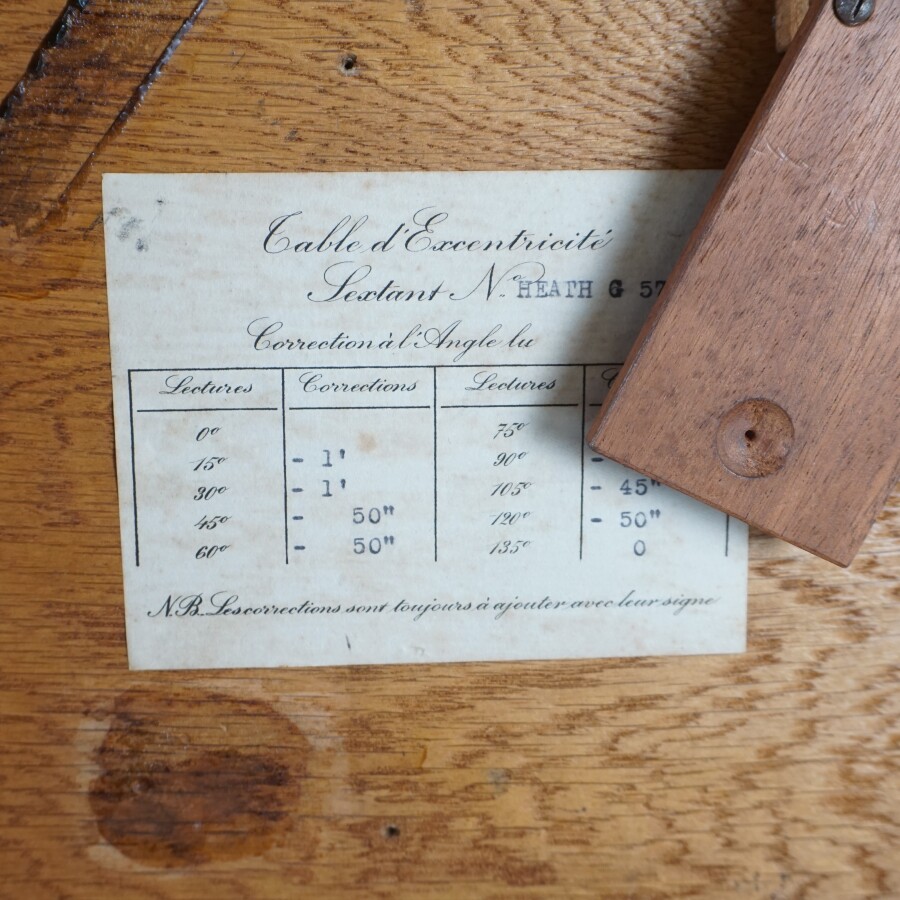 Table d'Excentricité
Sextant Nº HEATH G 57
Correction à l'Angle lu
Lectures Corrections Lectures
0º 75º
15º - 1' 90º -
30º - 1' 105º - 45"
45º - 50" 120º - 50"
60º - 50" 135º 0
N.B. Les corrections sont toujours à ajouter avec leur signe